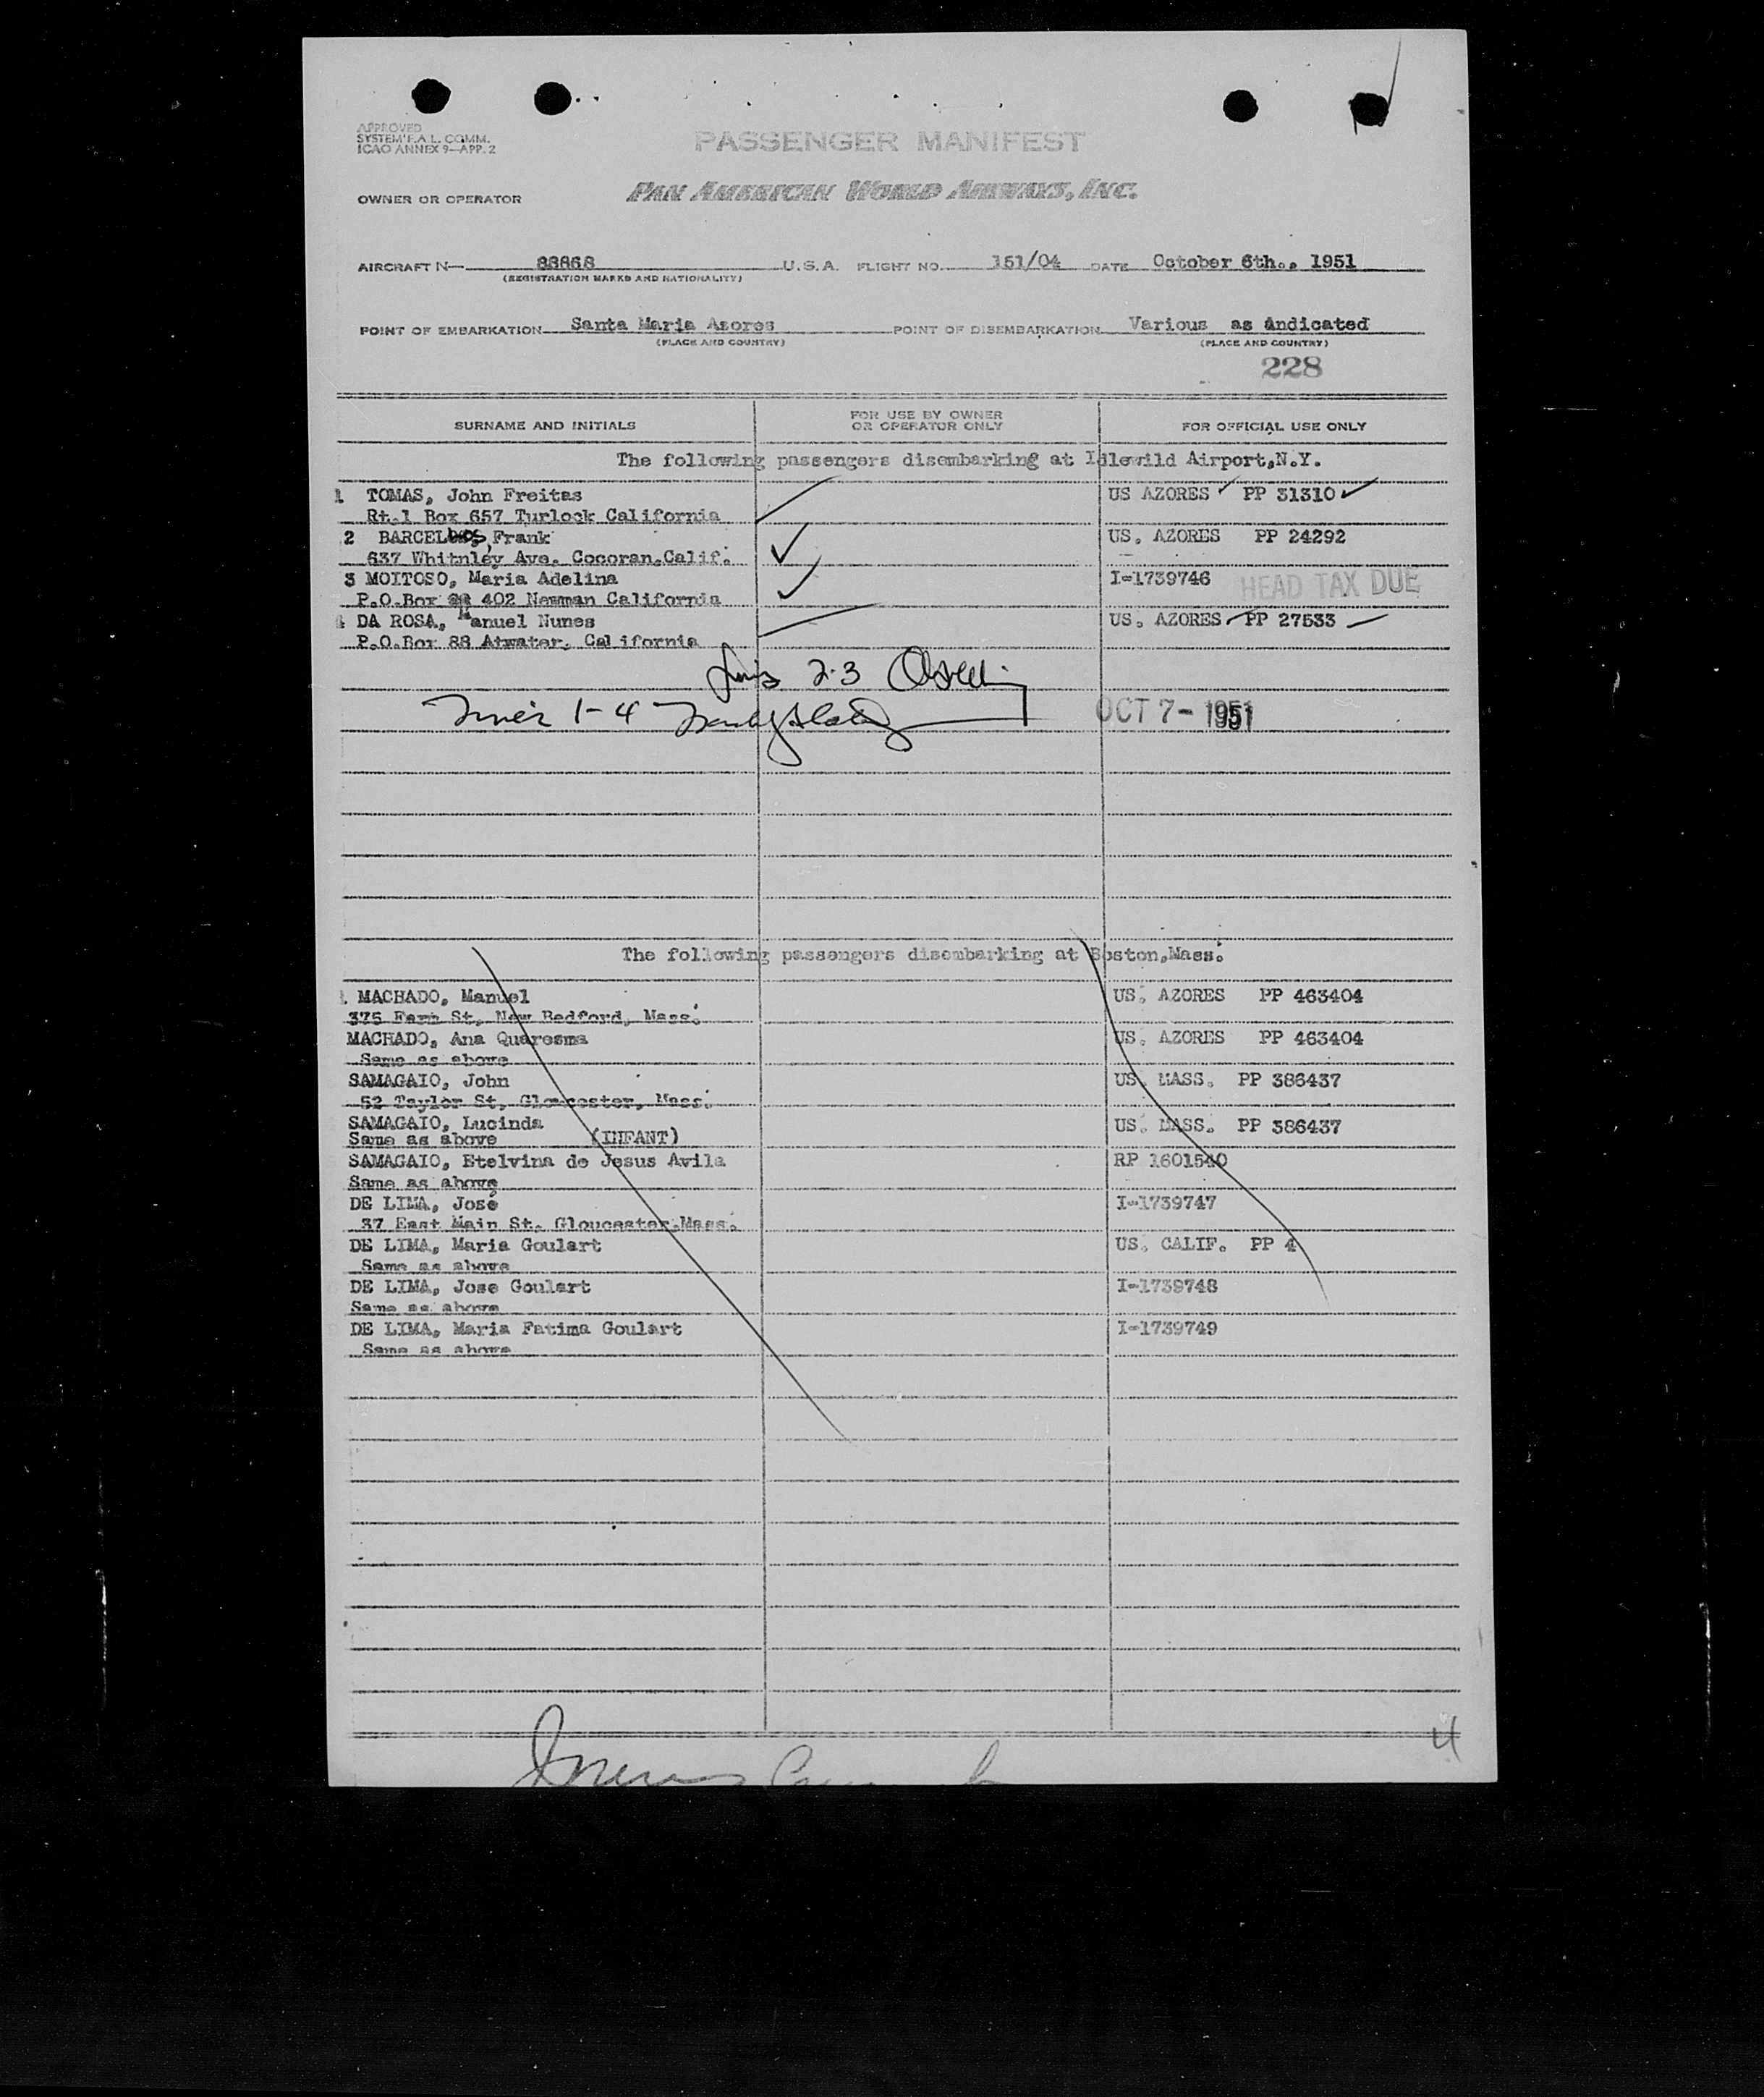 APPROVED
SYSTEM F.A.L. COMM.
ICAO ANNEX 9—APP. 2
PASSENGER MANIFEST
OWNER OR OPERATOR PAN AMERICAN WORLD AIRWAYS, INC.
AIRCRAFT N— 88868 U.S.A. FLIGHT NO. 151/04 DATE October 6th., 1951
(REGISTRATION MARKS AND NATIONALITY)
POINT OF EMBARKATION Santa Maria Azores POINT OF DISEMBARKATION Various as indicated
(PLACE AND COUNTRY) (PLACE AND COUNTRY)
228
SURNAME AND INITIALS FOR USE BY OWNER OR OPERATOR ONLY FOR OFFICIAL USE ONLY
The following passengers disembarking at Idlewild Airport,N.Y.
1 TOMAS, John Freitas US AZORES PP 31310
Rt.1 Box 657 Turlock California
2 BARCELOS, Frank US. AZORES PP 24292
637 Whitnley Ave. Cocoran,Calif.
3 MOITOSO, Maria Adelina I-1739746 HEAD TAX DUE
P.O.Box 402 Newman California
4 DA ROSA, Manuel Nunes US. AZORES PP 27533
P.O.Box 88 Atwater, California
2-3
1-4 OCT 7- 1951
The following passengers disembarking at Boston,Mass.
MACHADO, Manuel US. AZORES PP 463404
375 Farm St, New Bedford, Mass.
MACHADO, Ana Quaresma US. AZORES PP 463404
Same as above
SAMAGAIO, John US. MASS. PP 386437
52 Taylor St, Gloucester, Mass.
SAMAGAIO, Lucinda US. MASS. PP 386437
Same as above (INFANT)
SAMAGAIO, Etelvina de Jesus Avila RP 1601540
Same as above
DE LIMA, José I-1739747
37 East Main St. Gloucester,Mass.
DE LIMA, Maria Goulart US. CALIF. PP 4
Same as above
DE LIMA, Jose Goulart I-1739748
Same as above
DE LIMA, Maria Fatima Goulart I-1739749
Same as above
4